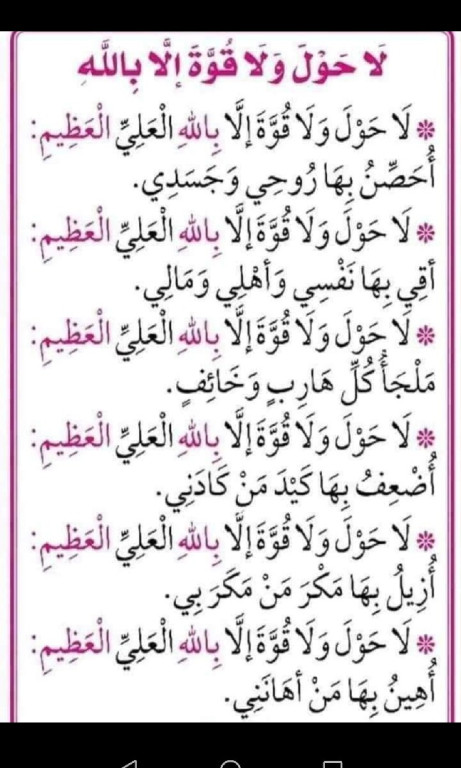 لَا حَوْلَ وَلَا قُوَّةَ إِلَّا بِاللَّهِ
* لَا حَوْلَ وَلَا قُوَّةَ إِلَّا بِاللهِ الْعَلِيِّ الْعَظِيمِ:
أُحَصِّنُ بِهَا رُوحِي وَجَسَدِي.
* لَا حَوْلَ وَلَا قُوَّةَ إِلَّا بِاللهِ الْعَلِيِّ الْعَظِيمِ:
أَقِي بِهَا نَفْسِي وَأَهْلِي وَمَالِي.
* لَا حَوْلَ وَلَا قُوَّةَ إِلَّا بِاللهِ الْعَلِيِّ الْعَظِيمِ:
مَلْجَأُ كُلِّ هَارِبٍ وَخَائِفٍ.
* لَا حَوْلَ وَلَا قُوَّةَ إِلَّا بِاللهِ الْعَلِيِّ الْعَظِيمِ:
أُضْعِفُ بِهَا كَيْدَ مَنْ كَادَنِي.
* لَا حَوْلَ وَلَا قُوَّةَ إِلَّا بِاللهِ الْعَلِيِّ الْعَظِيمِ:
أُزِيلُ بِهَا مَكْرَ مَنْ مَكَرَ بِي.
* لَا حَوْلَ وَلَا قُوَّةَ إِلَّا بِاللهِ الْعَلِيِّ الْعَظِيمِ:
أُهِينُ بِهَا مَنْ أَهَانَنِي.